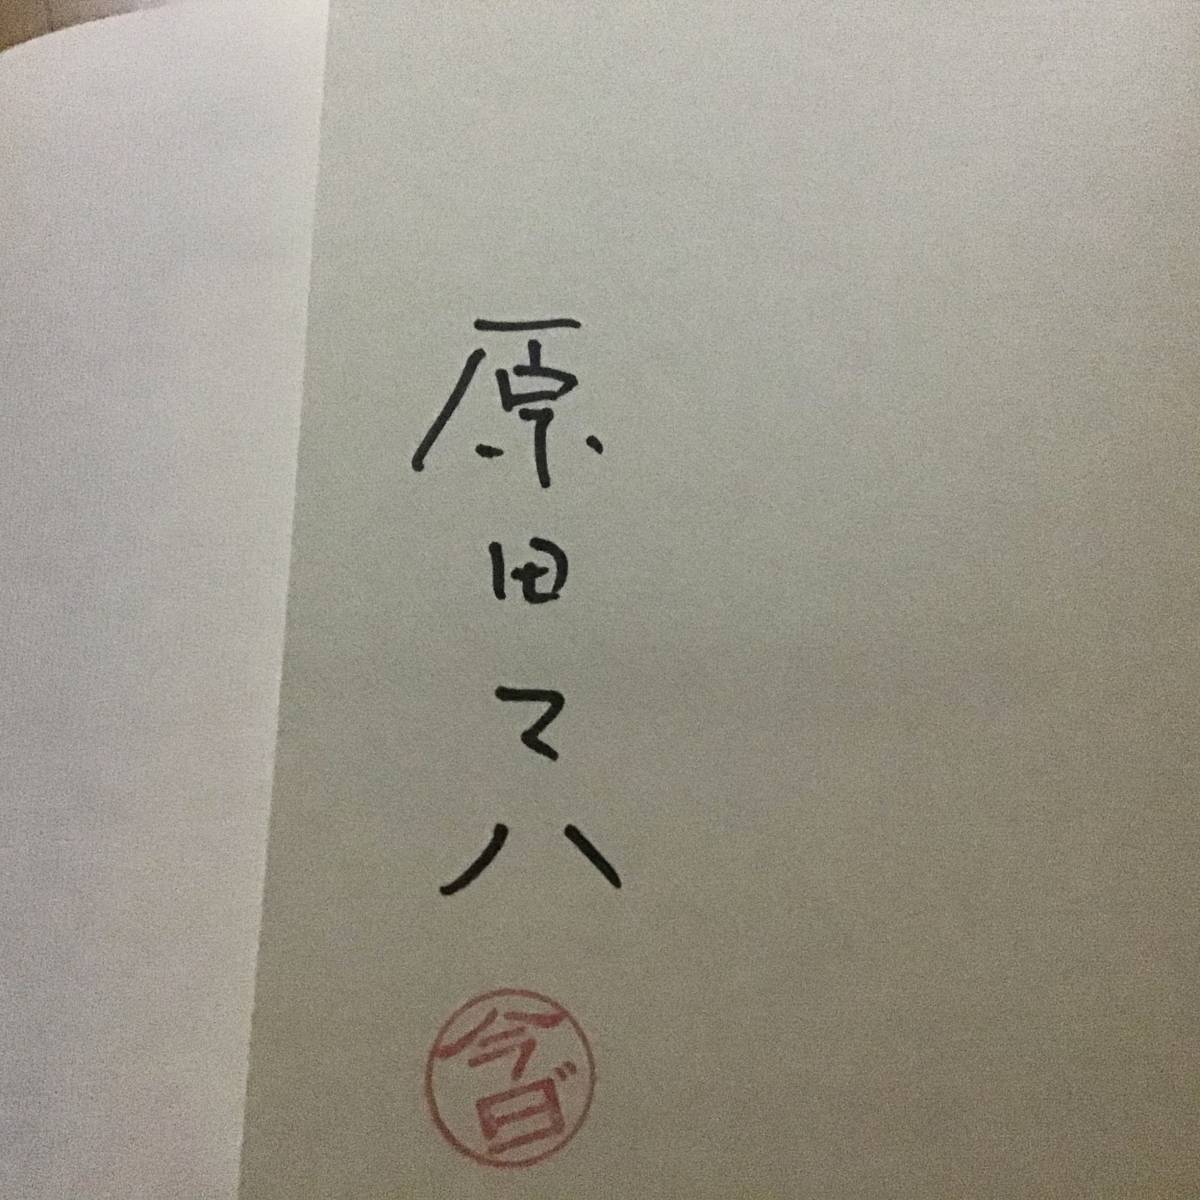 原田マハ
今日゛